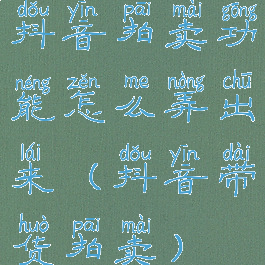 dǒu yīn pāi mài gōng
抖音拍卖功
néng zěn me nòng chū
能怎么弄出
lái dǒu yīn dài
来（抖音带
huò pāi mài
货拍卖）